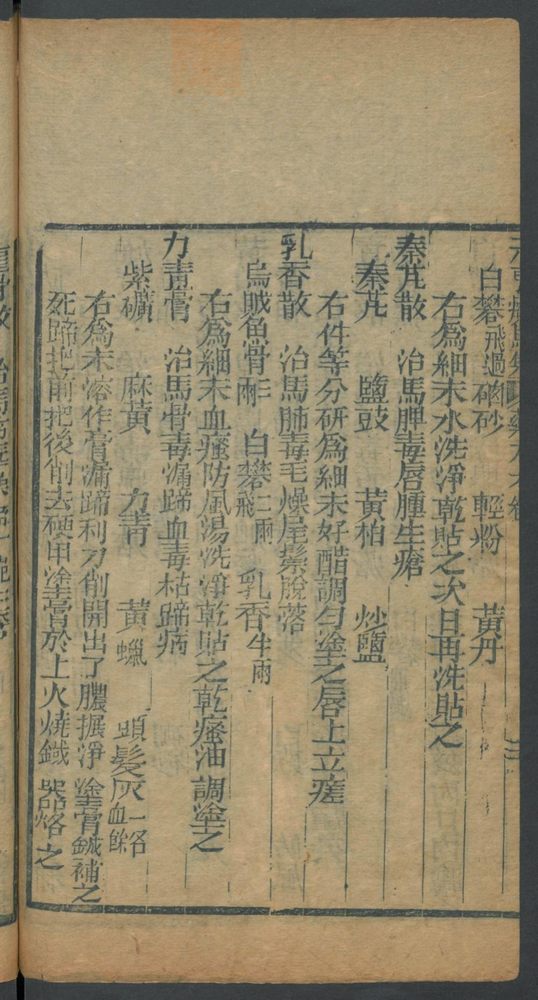 白礬飛過 硇砂 輕粉 黃丹
右爲細末水洗淨乾貼之次日再洗貼之
秦芃散 治馬脾毒唇腫生瘡
秦芃 鹽豉 黃柏 炒鹽
右件等分研爲細末好醋調勻塗之唇上立瘥
乳香散 治馬肺毒毛燥尾鬃脫落
烏賊魚骨 白礬飛二兩 乳香半兩
右爲細末血瘙防風湯洗淨乾貼之乾瘙油調塗之
力靑膏 治馬骨毒漏蹄血毒枯蹄病
紫礦 麻黃 力靑 黃蠟 頭髮灰
右爲末溶作膏漏蹄利刀削開出了膿掘淨塗膏鍼補之
死蹄把前把後削去硬甲塗膏於上火燒鍼器烙之